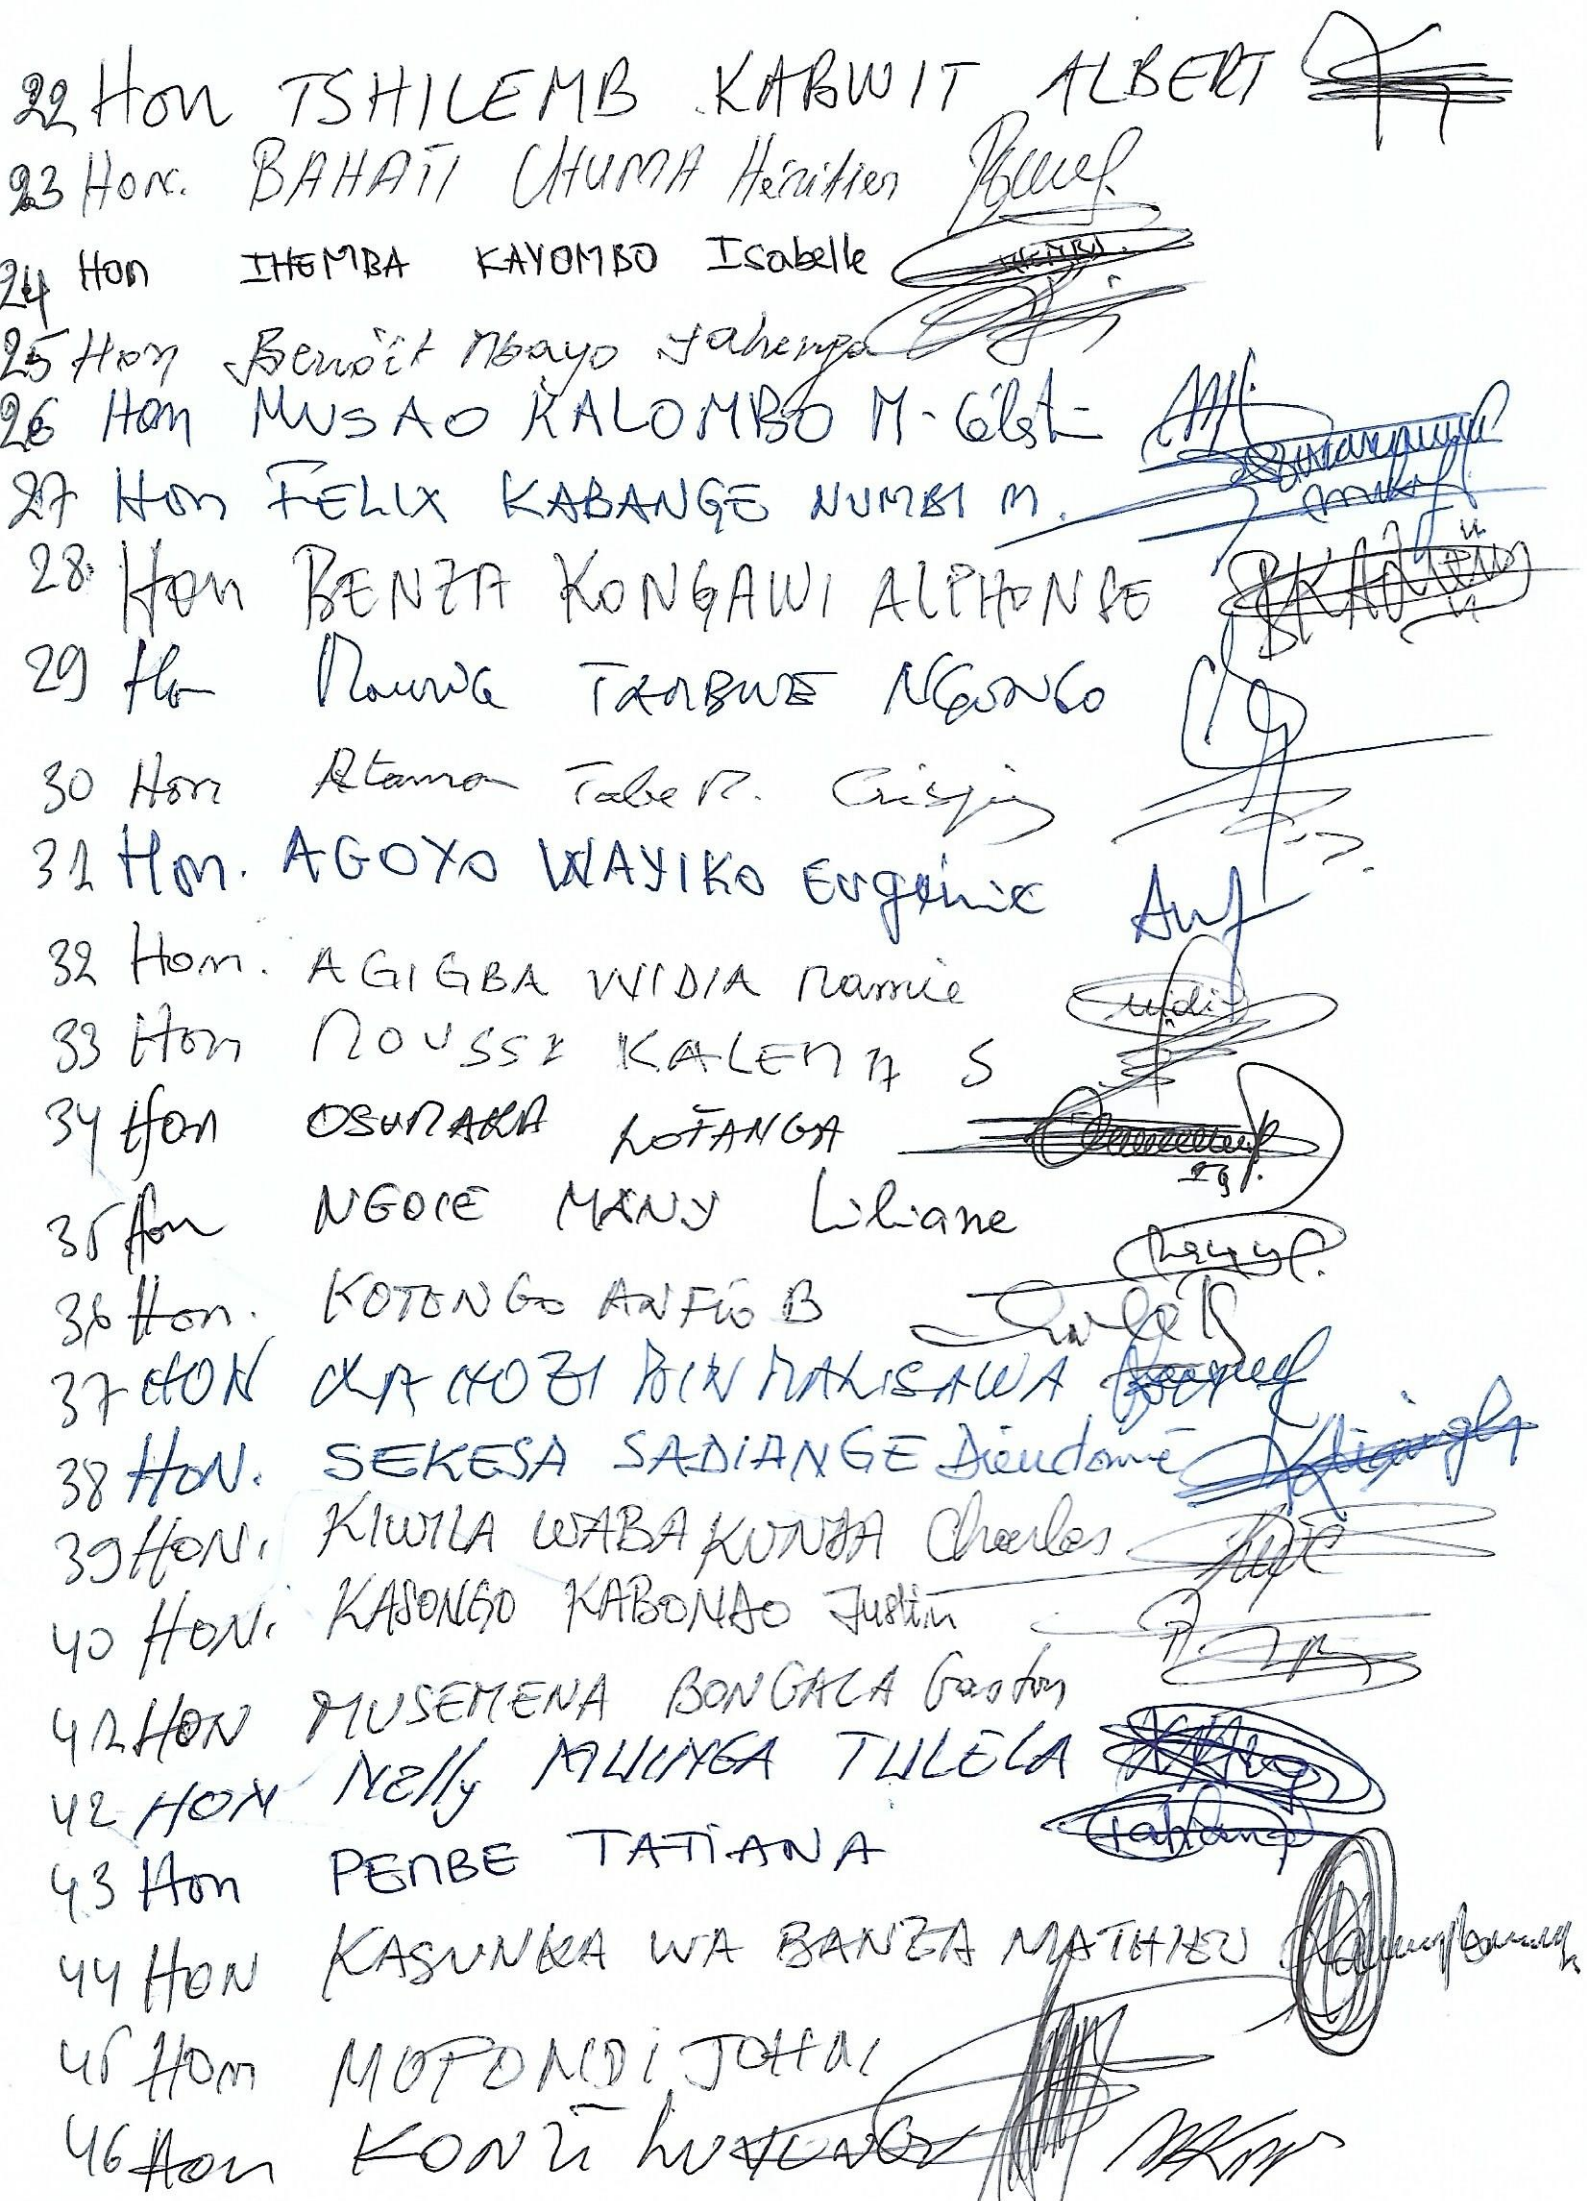 22 Hon TSHILEMB KABWIT ALBERT
23 Hon. BAHATI CHUMA Héritier
24 Hon IHEMBA KAYOMBO Isabelle
25 Hon Benoît Mbayo
26 Hon MUSAO KALOMBO M-
27 Hon FELIX KABANGE NUMBI M.
28. Hon BENZA KONGAWI ALPHONSE
29 Hon Maurice TAMBWE NGONGO
30 Hon Atama Tabe M. Crispin
31 Hon. AGOYO WAYIKO Eugénie
32 Hon. AGIGBA WIDIA Mamie
33 Hon MOUSSI KALEMA S
34 Hon OSUMAKA LOFANGA
35 Hon NGOIE MANY Liliane
36 Hon. KOTONGO ANFIO B
37 HON KAHOZI BIN MALISAWA
38 HON. SEKESA SADIANGE Dieudonné
39 HON. KIWILA WABAKUNDA Charles
40 HON. KASONGO KABONDO Justin
41 HON MUSEMENA BONGALA Gaston
42 HON Nelly MULUNGA TULELA
43 Hon PEMBE TATIANA
44 HON KASUNKA WA BANZA MATHIEU
45 Hon MOPONDI JOHN
46 Hon KONZI